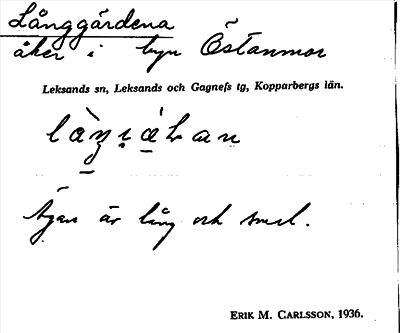 Långgärdena
åker i byn Östanmor
Leksands sn, Leksands och Gagnefs tg, Kopparbergs län.
är lång och smal.
ERIK M. CARLSSON, 1936.